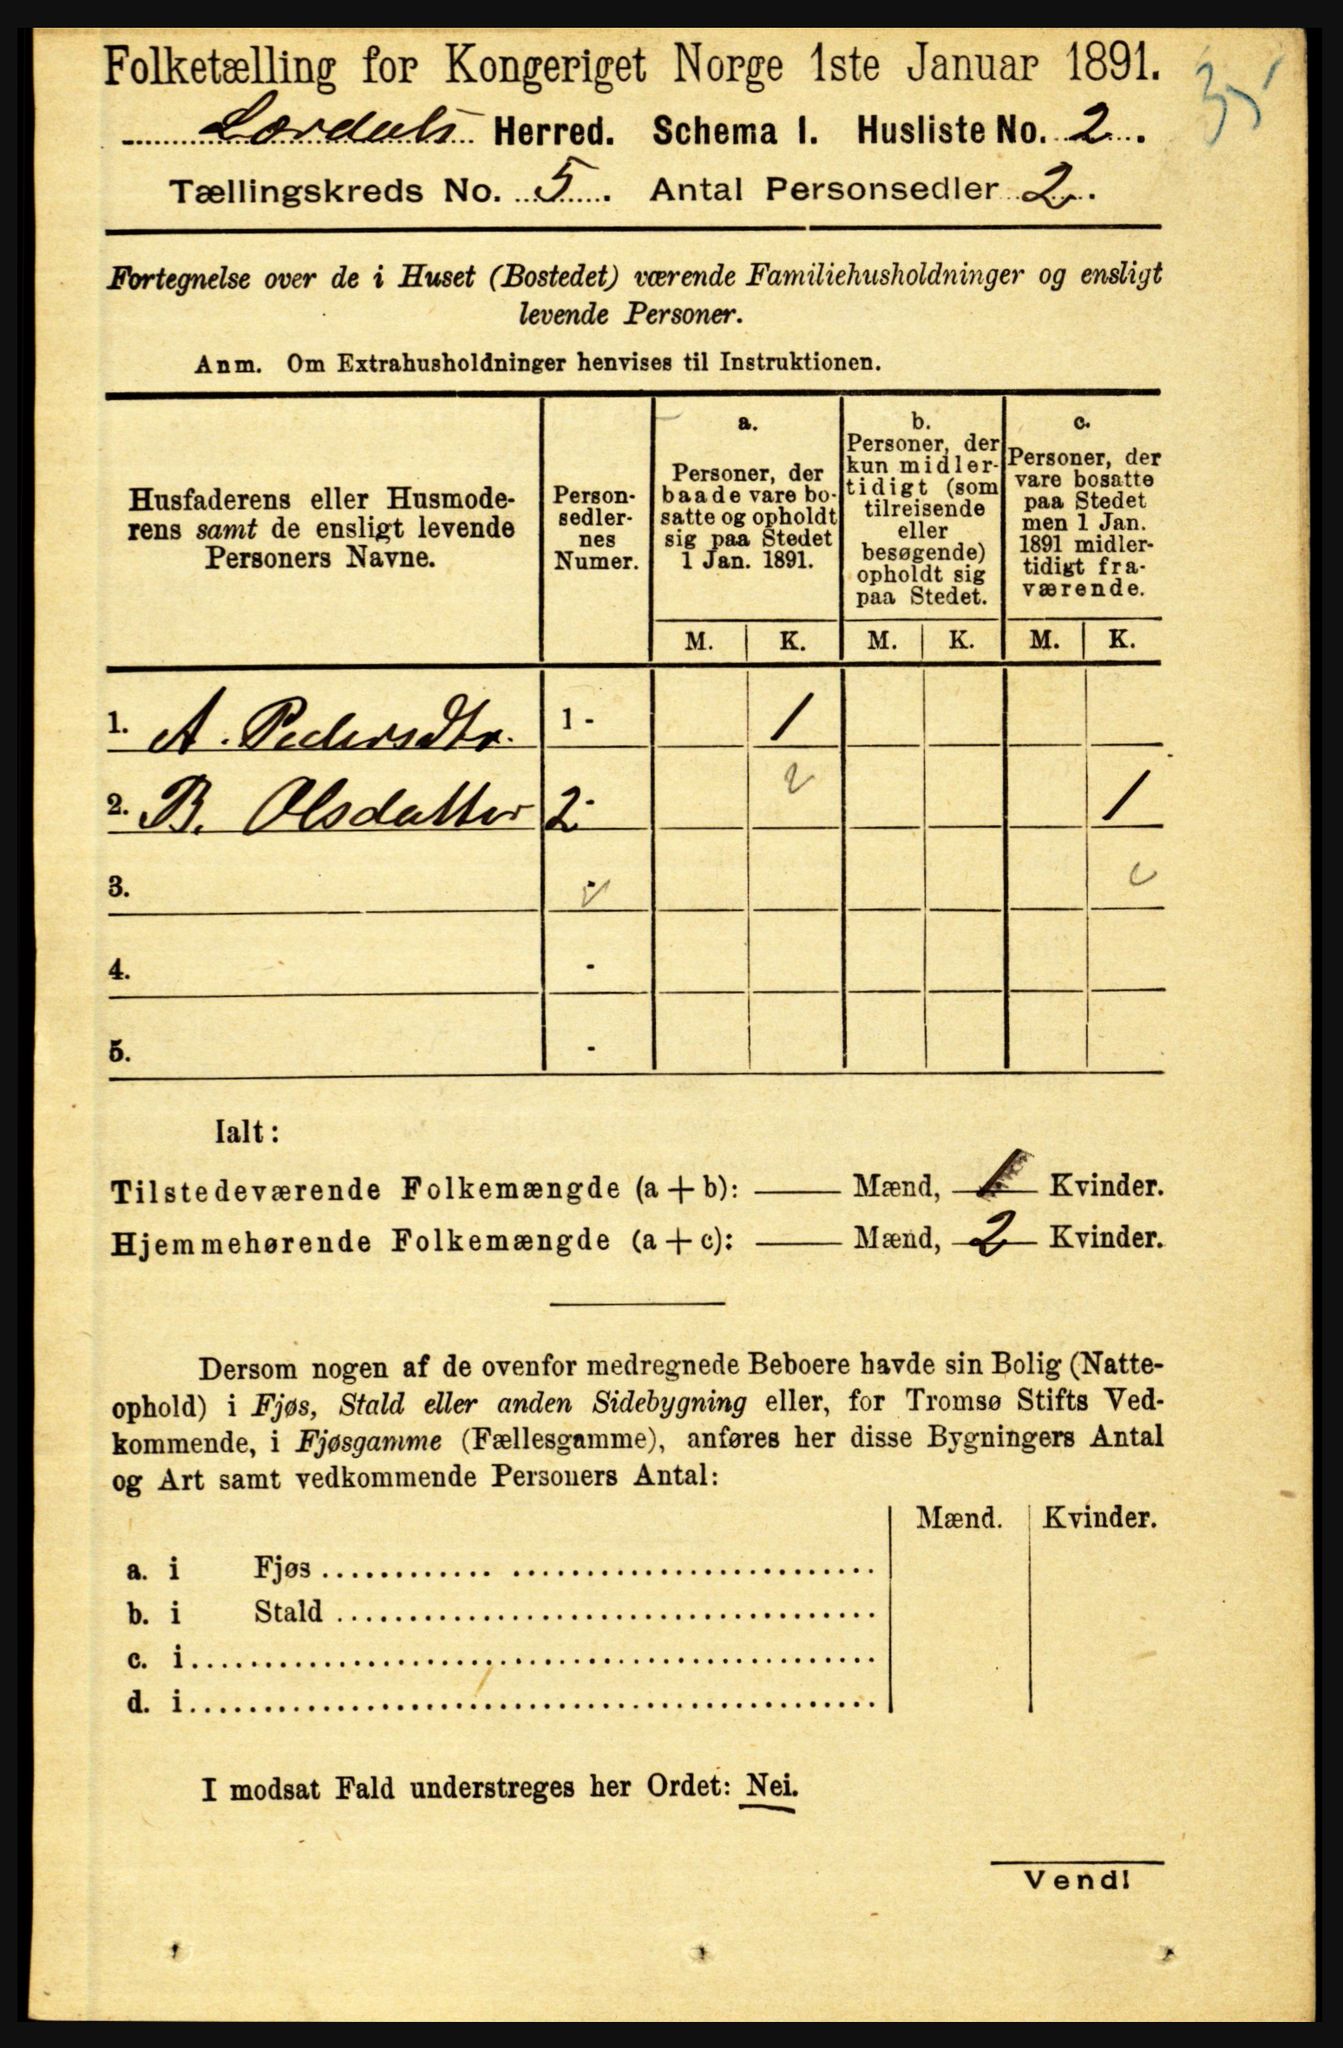 Folketælling for Kongeriget Norge 1ste Januar 1891.
35
Lærdals Herred. Schema I. Husliste No. 2.
Tællingskreds No. 5. Antal Personsedler 2.
Fortegnelse over de i Huset (Bostedet) værende Familiehusholdninger og ensligt
levende Personer.
Anm. Om Extrahusholdninger henvises til Instruktionen.
Husfaderens eller Husmode-
rens samt de ensligt levende
Personers Navne.
Person-
sedler-
nes
Numer.
a.
Personer, der
baade vare bo-
satte og opholdt
sig paa Stedet
1 Jan. 1891.
b.
Personer, der
kun midler-
tidigt (som
tilreisende
eller
besøgende)
opholdt sig
paa Stedet.
c.
Personer, der
vare bosatte
paa Stedet
men 1 Jan.
1891 midler-
tidigt fra-
værende.
M. K. M. K. M. K.
1. A. Pedersdtr. 1 - 1
2. B. Olsdatter 2 - 1
3. -
4. -
5. -
Ialt:
Tilstedeværende Folkemængde (a + b): — Mænd, 1 Kvinder.
Hjemmehørende Folkemængde (a + c): — Mænd, 2 Kvinder.
Dersom nogen af de ovenfor medregnede Beboere havde sin Bolig (Natte-
ophold) i Fjøs, Stald eller anden Sidebygning eller, for Tromsø Stifts Ved-
kommende, i Fjøsgamme (Fællesgamme), anføres her disse Bygningers Antal
og Art samt vedkommende Personers Antal:
Mænd. Kvinder.
a. i Fjøs
b. i Stald
c. i
d. i
I modsat Fald understreges her Ordet: Nei.
Vend!